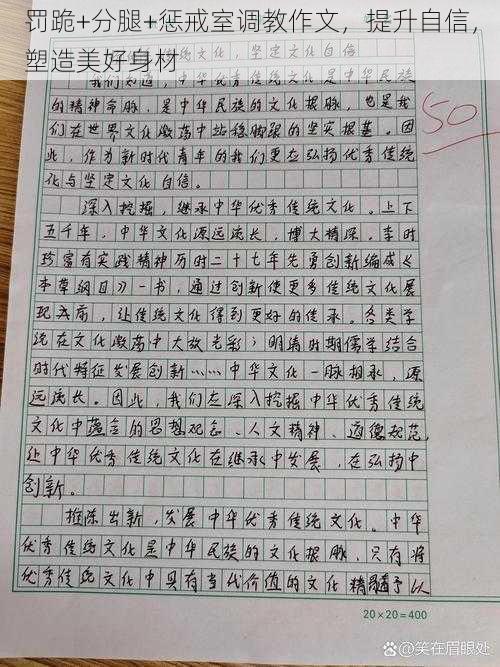 罚跪+分腿+惩戒室调教作文，提升自信，
塑造美好身材
文化，坚定文化自信
我们知道，中华优秀传统文化是中华民族
的精神命脉，是中华民族的文化根脉，也是我
们在世界文化激荡中站稳脚跟的坚实根基。因
此，作为新时代青年的我们更应弘扬优秀传统
化与坚定文化自信。
50
深入挖掘，继承中华优秀传统文化。上下
五千年，中华文化源远流长，博大精深。李时
珍富有实践精神历时二十七年先勇创新编成《
本草纲目》一书，通过创新使更多传统文化展
现我前，让传统文化得到更好的传承。各类学
说在文化激荡中大放光彩；明清时期儒学结合
时代特征发展创新……中华文化一脉相承，源
远流长。因此，我们应深入挖掘中华优秀传统
文化中蕴含的思想观念、人文精神、道德规范，
让中华优秀传统文化在继承中发展，在弘扬中
创新。
推陈出新，发展中华优秀传统文化。中华
优秀传统文化是中华民族的文化根脉，只有将
优秀传统文化中具有当代价值的文化精髓予以
20×20=400
Baidu 百度 @笑在眉眼处